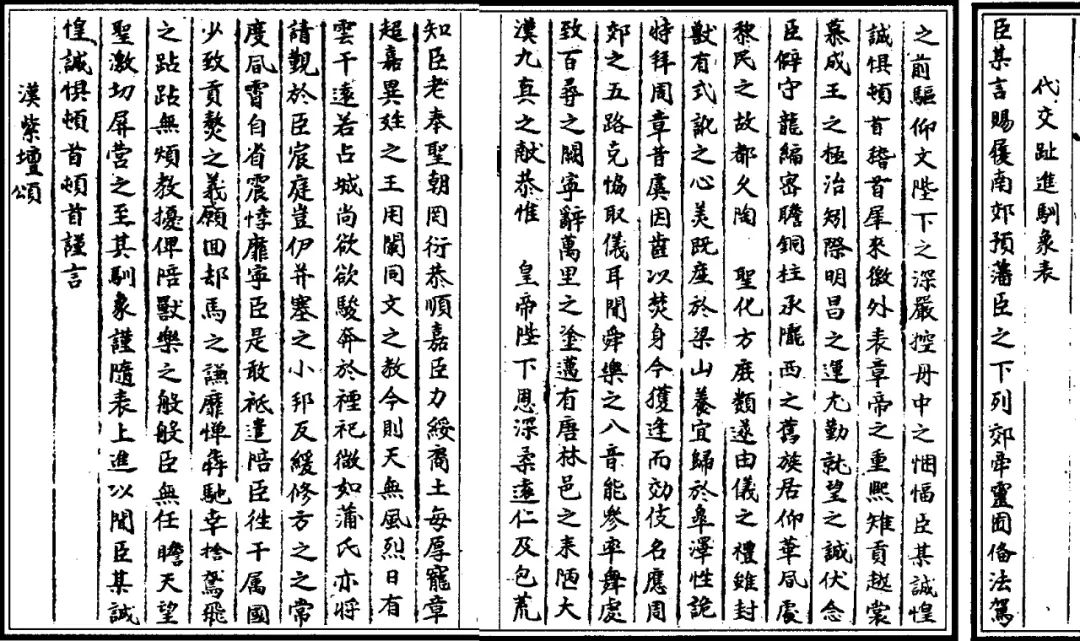 代交趾進馴象表
臣某言賜履南郊預藩臣之下列郊牽靈囿俻法駕
之前驅仰文陛下之深嚴控毋中之悃愊臣某誠惶
誠惧頓首稽首犀来徼外表章帝之重熙雉貢越裳
慕成王之極治矧際明昌之運尤勤就望之誠伏念
臣僻守龍編密瞻銅柱承隴西之舊族居仰華風處
黎民之故都久陶 聖化方庶類遂由儀之禮雖封
獸有式訛之心美既産於梁山養宜歸於皐澤性詭
特拜周章昔虞因齒以焚身今獲逢而効伎名應周
郊之五路克恊取儀耳聞舜樂之八音能參率舞處
致百尋之闕寧辭萬里之塗邁有唐林邑之来陋大
漢九真之献恭惟 皇帝陛下恩深柔遠仁及包荒
知臣老奉聖朝罔衍恭順嘉臣力綏裔土每厚寵章
超嘉異姓之王用闡同文之教今則天無風烈日有
雲干遠若占城尚欲欲駿奔於禋祀微如蒲氏亦将
請觀於臣宸庭豈伊井塞之小邦反緩修方之之常
度風霄自省震悸靡寧臣是敢祗遣陪臣徃干属國
少致貢獒之義願回却馬之謙靡憚犇馳幸捨駕飛
之跕跕無煩教擾俾陪獸樂之般般臣無任瞻天望
聖激切屏营之至其馴象謹隨表上進以聞臣某誠
惶誠惧頓首頓首謹言
漢紫壇頌